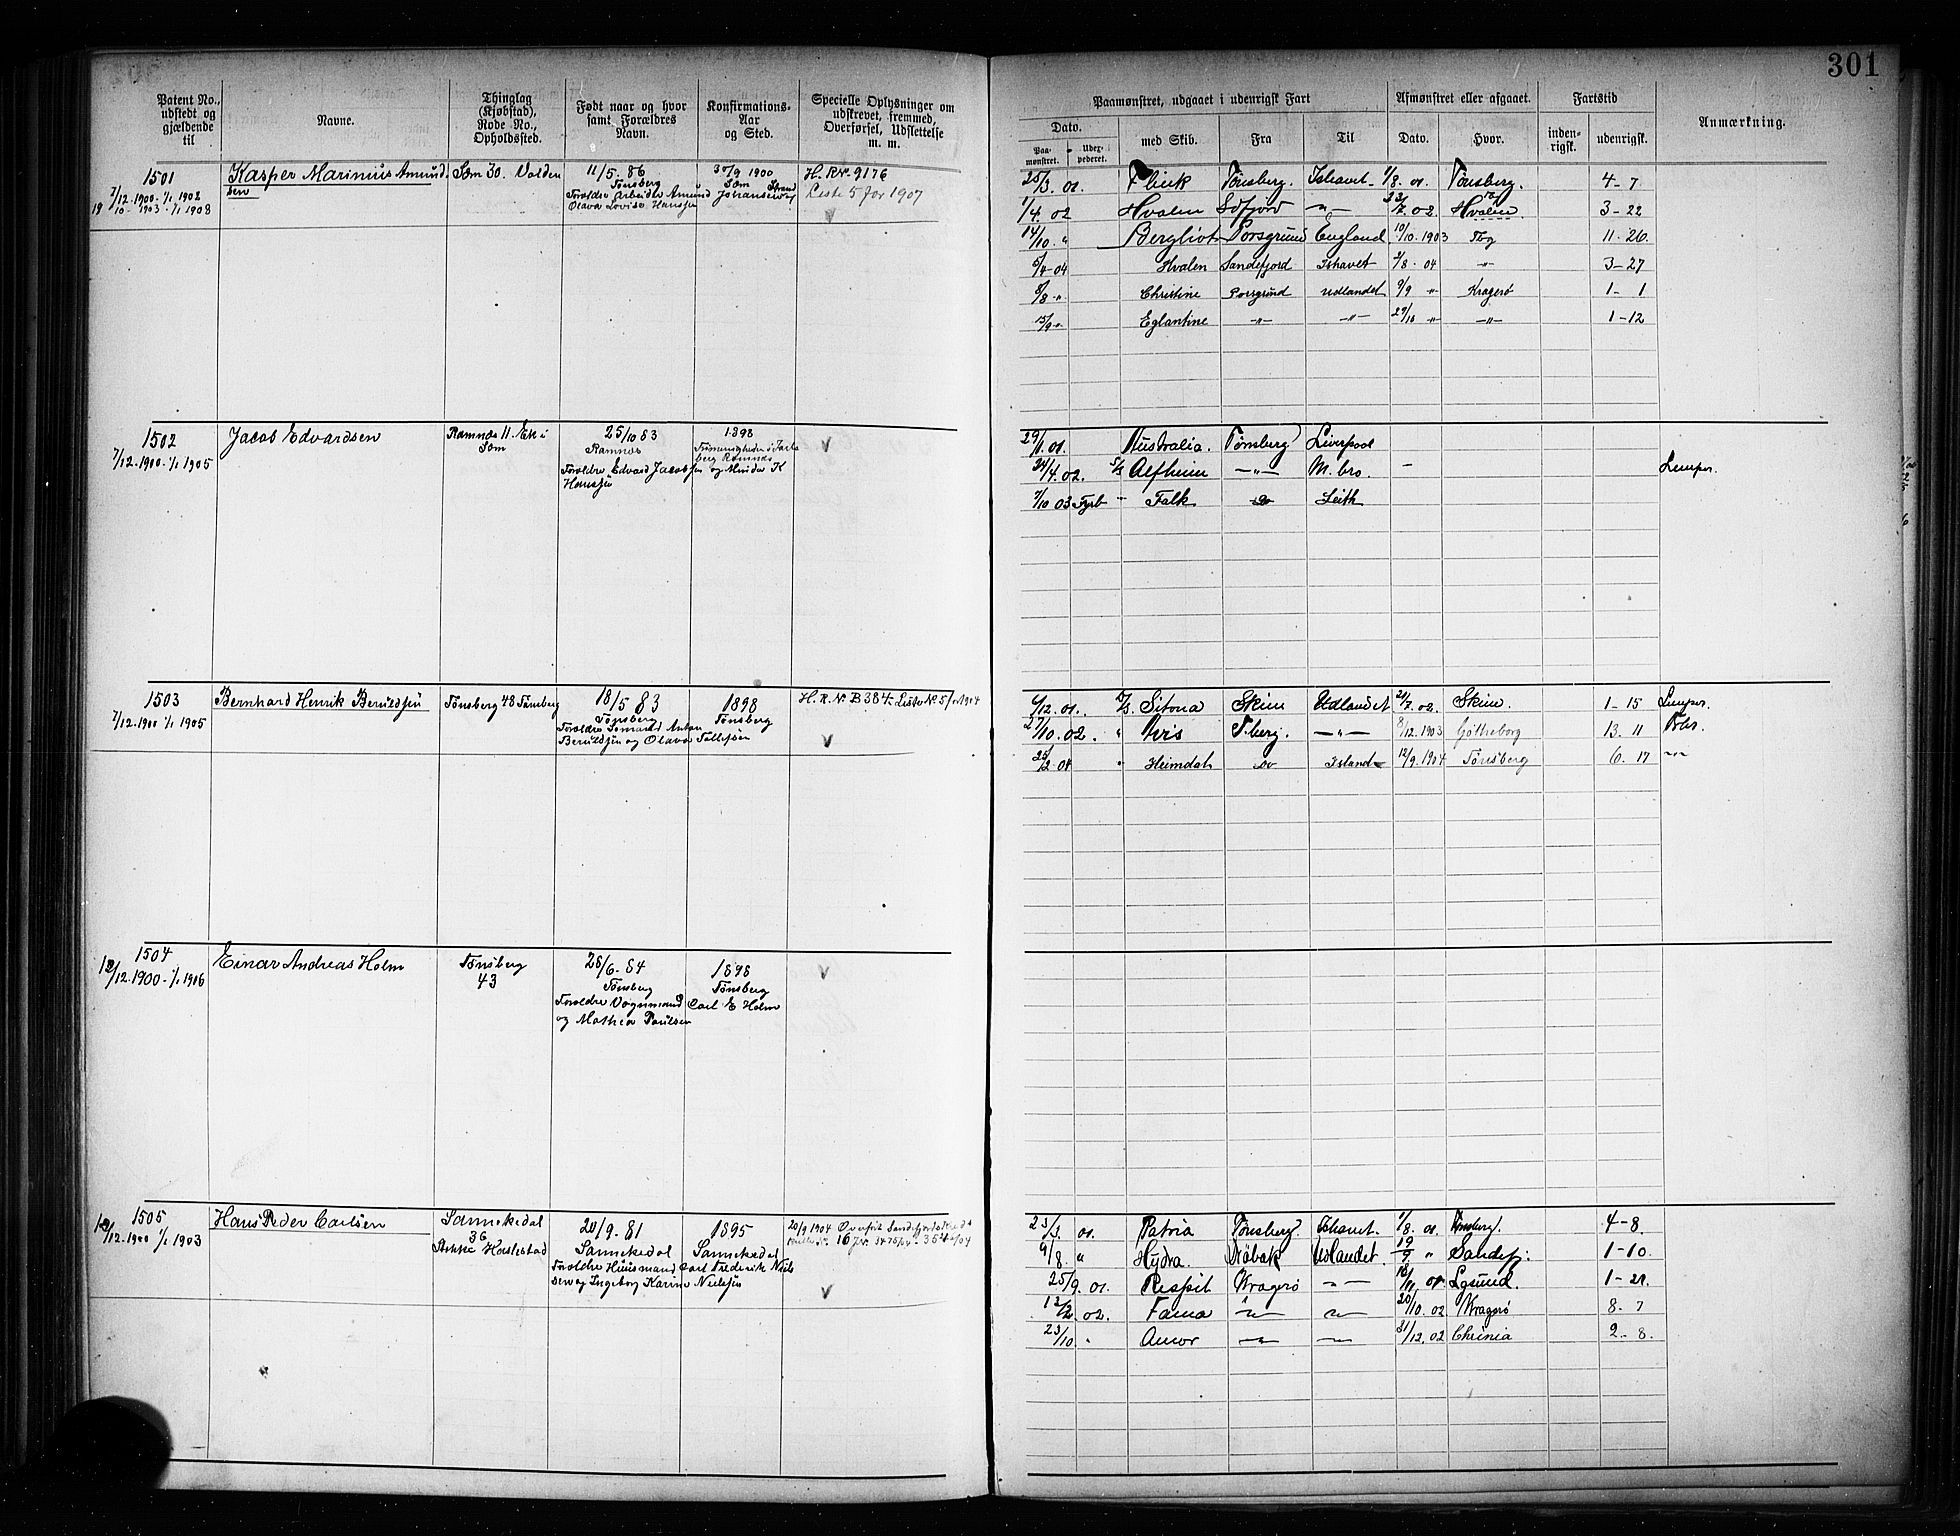 301
Patent No., udstedt og gjældende til
Navne.
Thinglag (Kjøbstad), Rode No., Opholdssted.
Født naar og hvor samt Forældres Navn.
Konfirmations-Aar og Sted.
Specielle Oplysninger om udskrevet, fremmed, Overførsel, Udslettelse m. m.
Paamønstret, udgaaet i udenrigsk Fart
Afmønstret eller afgaaet.
Fartstid
Anmærkning.
Dato.
med Skib.
Fra
Til
Dato.
Hvor.
inden-rigsk.
udenrigsk.
Paa-mønstret.
1501
7/12-1900-1/1 1902
Kasper Marinius Amundsen
Sem 30. Volden
11/5. 86
Tønsberg
Forældre Arbeider Amund
Olava Lovise Hansen
30/9 1900
Sem
H.R.Nr. 9176
Liste 5 for 1907
25/3. 01. Flink Tønsberg. Ishavet 1/8. 01. Tønsberg. 4-7
1/4. 02 Hvalen 3-22
14/10. " Bergliot Porsgrund England 10/10. 1903 Tbg 11-26.
5/4-04 Hvalen Sandefjord Ishavet 2/8. 04 -"- 3-27
8/8-"- Christine Porsgrund Udlandet 9/9 -"- Kragerø 1-1
15/9-"- Eglantine -"- -"- 27/10 -"- -"- 1-12
1502
7/12-1900-1/1 1905
Jacob Edvardsen
Ramnæs 11. Eik i Sem
25/10 83
Ramnæs
Forældre Edvard Jacobsen og Minda K
Hansen
1898
29/1. 01. Australia. Tønsberg Liverpool
24/4. 02. Alfheim -"- M. bro. Lemper.
7/10 03 Fyrb - Falk do Leith
1503
7/12-1900 1/1 1905
Bernhard Henrik Berntdsen
Tønsberg 48 Tønsberg
18/5 83
Tønsberg
1898
Tønsberg
H.R.Nr. B 384. Liste No. 5 for 1904
6/12. 01. Sitona Skien Udlandet 21/7. 02. Skien. 1-15 Lemper.
27/10. 02. " Avis T.berg. -"- 8/12. 1903 Gøtheborg 13. 11
25/2. 04 " Heimdal do Island 12/9. 1904 Tønsberg 6. 17 -"-
1504
12/12-1900-1/1 1906
Einar Andreas Holm
Tønsberg
43
28/6-84
Tønsberg
Forældre Vognmand Carl E Holm
og Mathea Paulsen
1898
Tønsberg
1505
12/12-1900 1/1 1903
Hans Peder Carlsen
Sannekedal
36
Stokke Haslestad
20/9. 81
Sannekedal
Forældre Huusmand Carl Frederik Niels
sen og Ingeborg Karine Nielsen
1895
Sannekedal
23/3. 01. Patria Tønsberg. Ishavet. 1/8. 01 Tønsberg. 4-8.
9/8. " Hydra. Drøbak Udlandet. 19/9 " Sandefj: 1-10.
25/9. 01. Respit Kragerø -"- 01. Lgsund. 1-21.
12/2. 02. Fama -"- -"- 20/10. 02 Kragerø 8. 7
23/10 " Amor -"- -"- 31/12. 02 Chrinia 2-8.